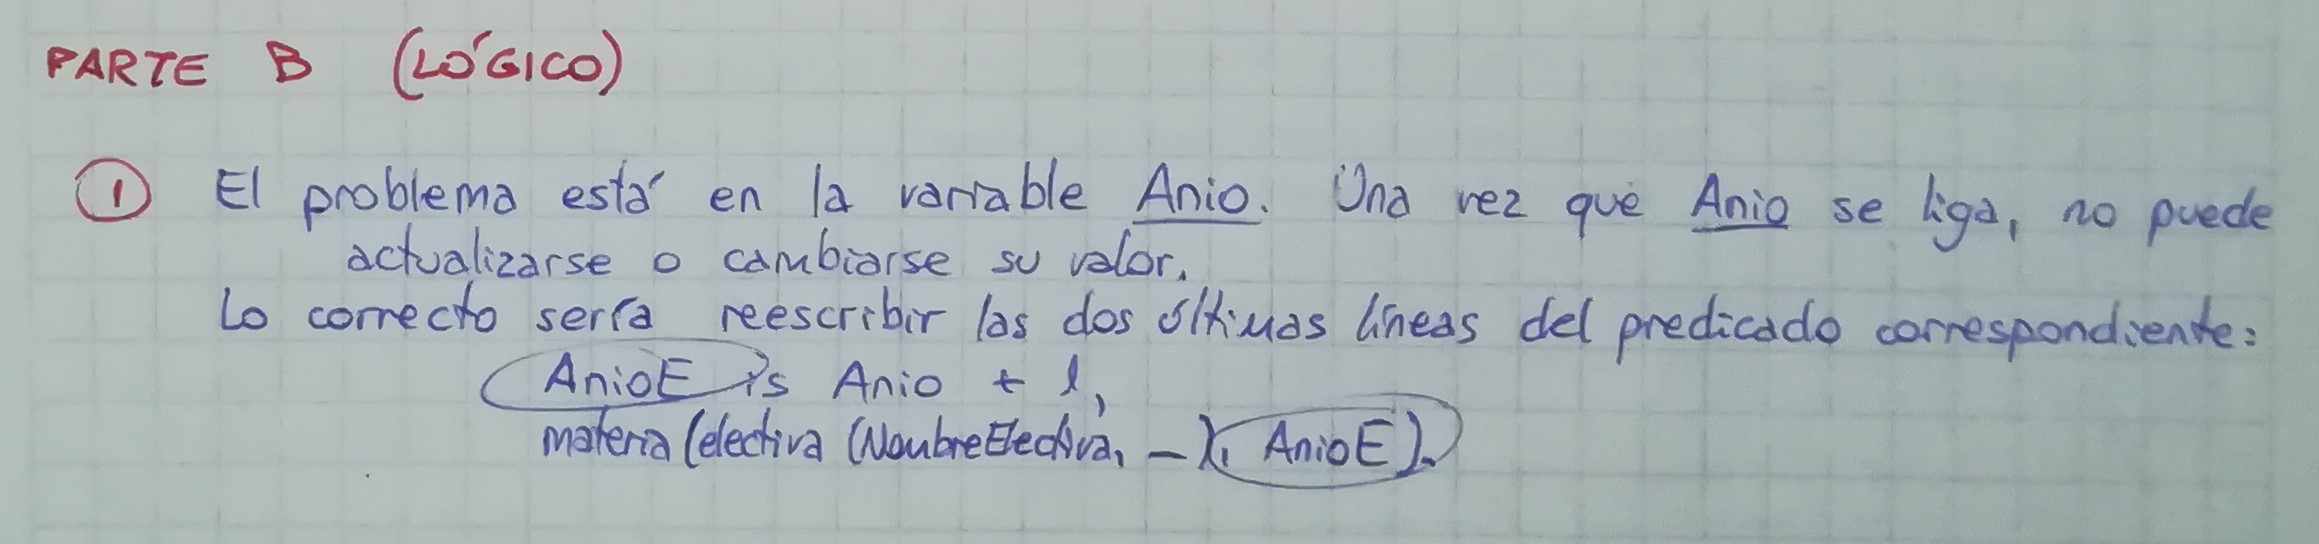 PARTE B (LÓGICO)
1 El problema está en la variable Anio. Una vez que Anio se liga, no puede
actualizarse o cambiarse su valor.
Lo correcto sería reescribir las dos últimas líneas del predicado correspondiente:
AnioE is Anio + 1,
materia (electiva (NombreElectiva, _), AnioE).